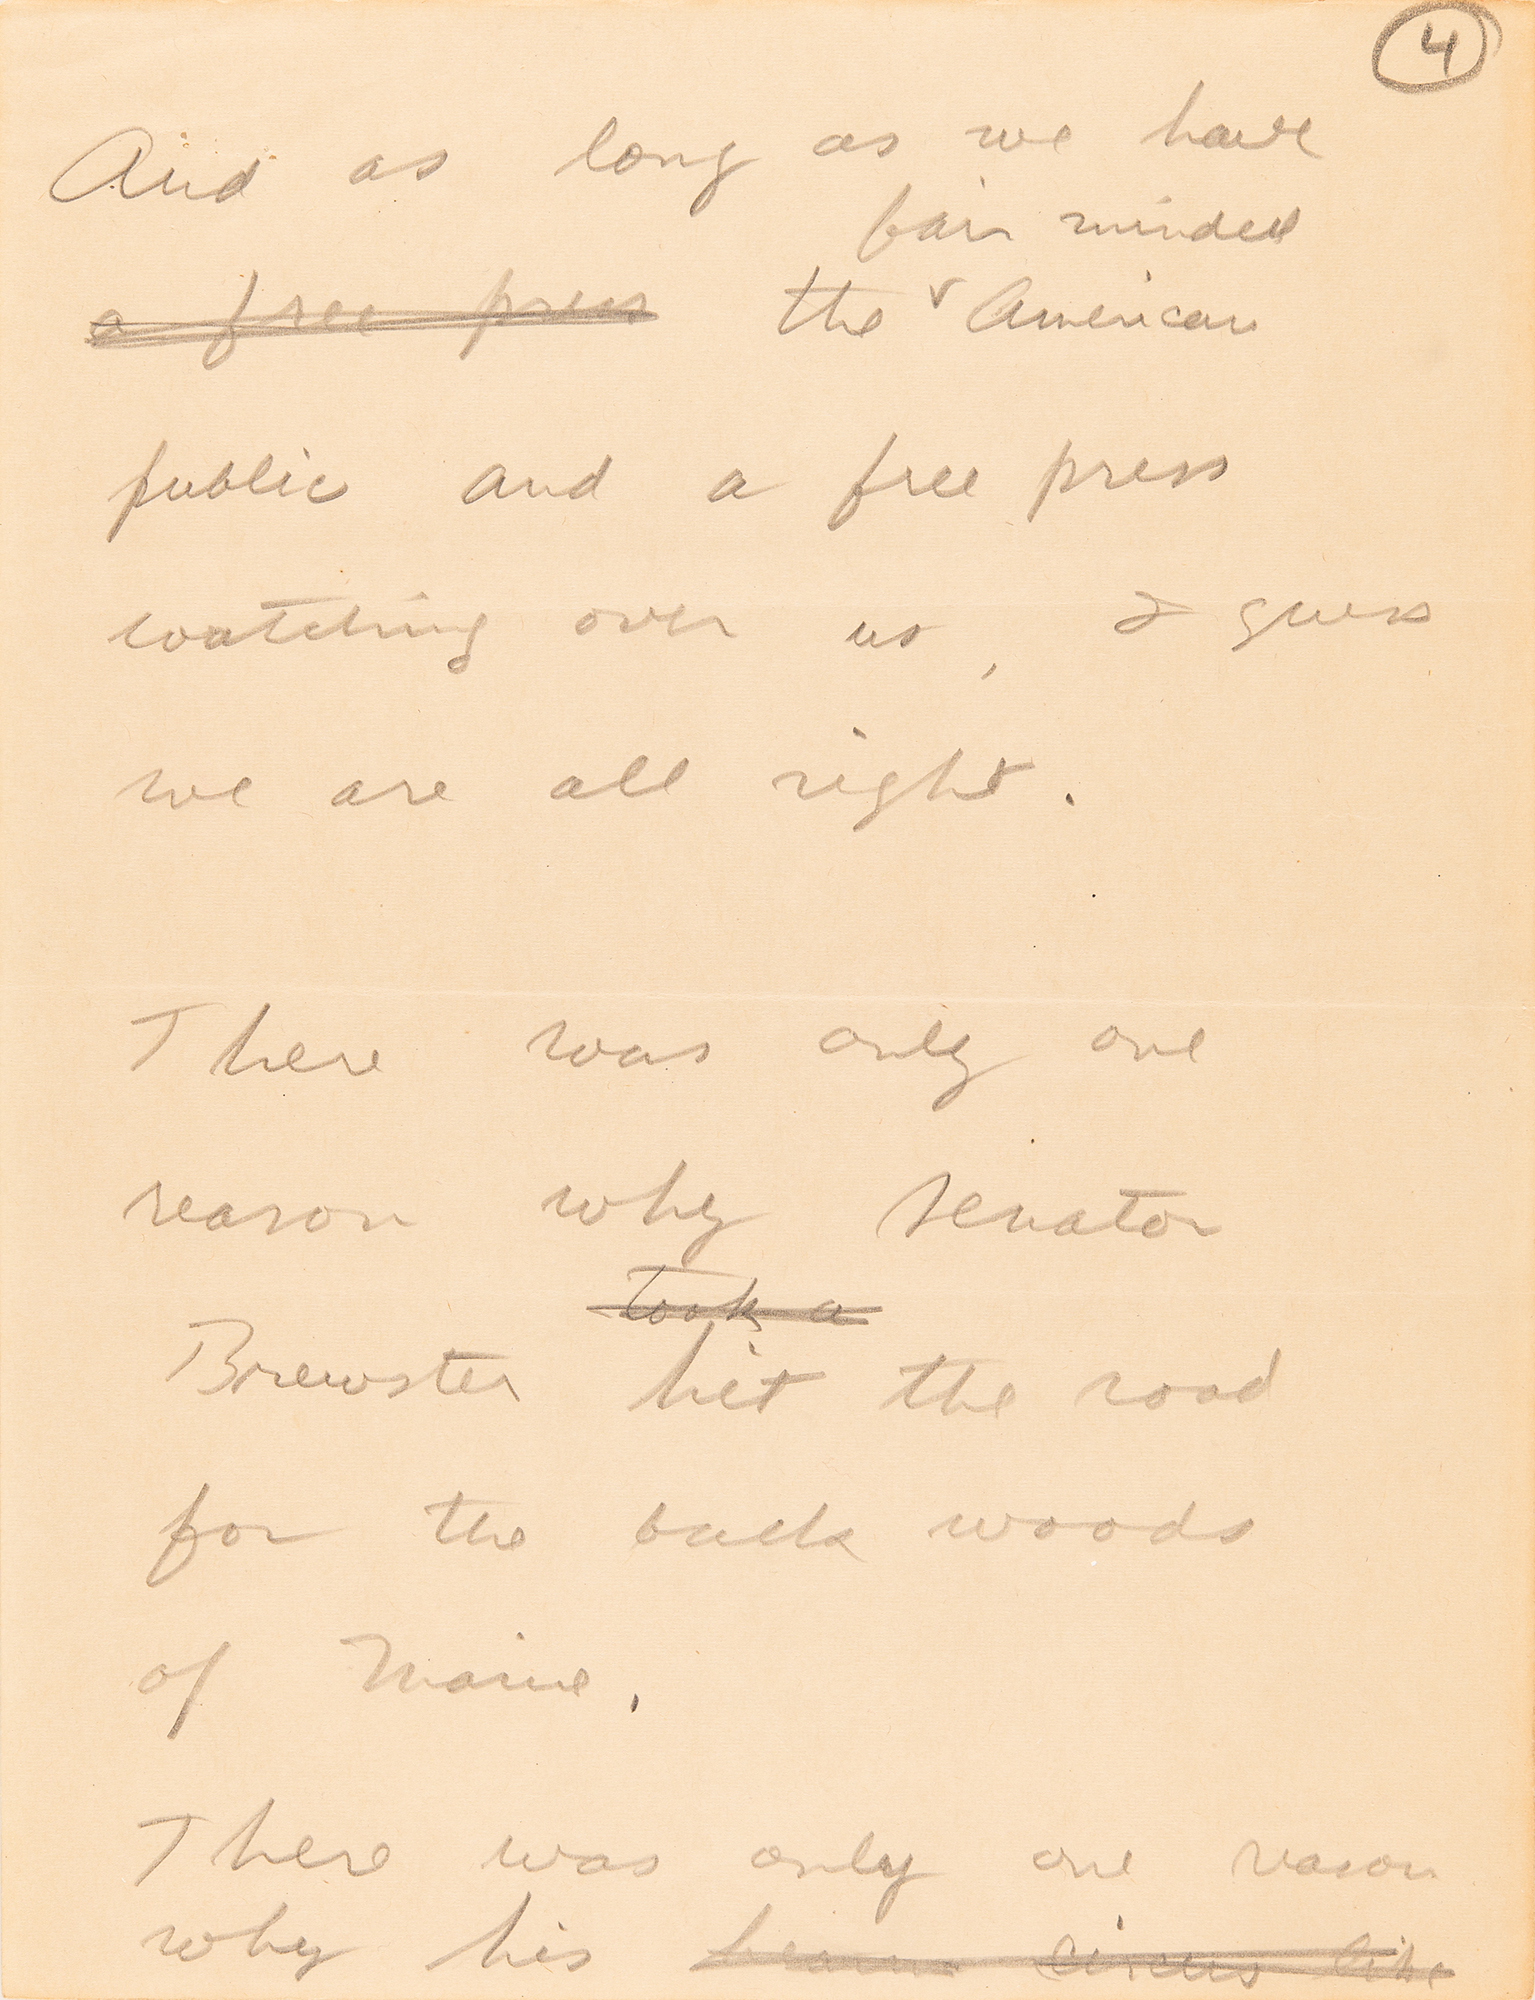 4
And as long as we have
fair minded
a free press the ˅ American
public and a free press
watching over us, I guess
we are all right.
There was only one
reason why Senator
took a
Brewster hit the road
for the back woods
of Maine.
There was only one reason
why his circus like